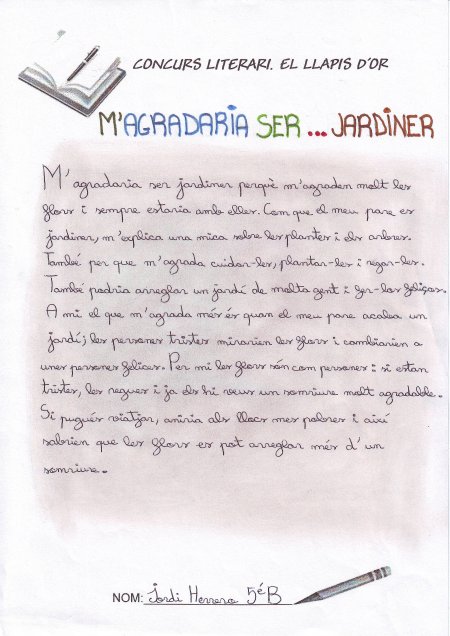 CONCURS LITERARI. EL LLAPIS D'OR
M'AGRADARIA SER ... JARDINER
M'agradaria ser jardiner perquè m'agraden molt les
flors i sempre estaria amb elles. Com que el meu pare es
jardiner, m'explica una mica sobre les plantes i els arbres.
També per que m'agrada cuidar-les, plantar-les i regar-les.
També podria arreglar un jardí de molta gent i fer-los feliços.
A mi el que m'agrada més és quan el meu pare acaba un
jardí; les persones tristes mirarien les flors i cambiarien a
unes persones felices. Per mi les flors són com persones: si estan
tristes, les regues i ja els hi veus un somriure molt agradable.
Si pugués viatjar, aniria als llocs mes pobres i així
sabrien que les flors es pot arreglar més d'un
somriure.
NOM: Jordi Herrera 5é B